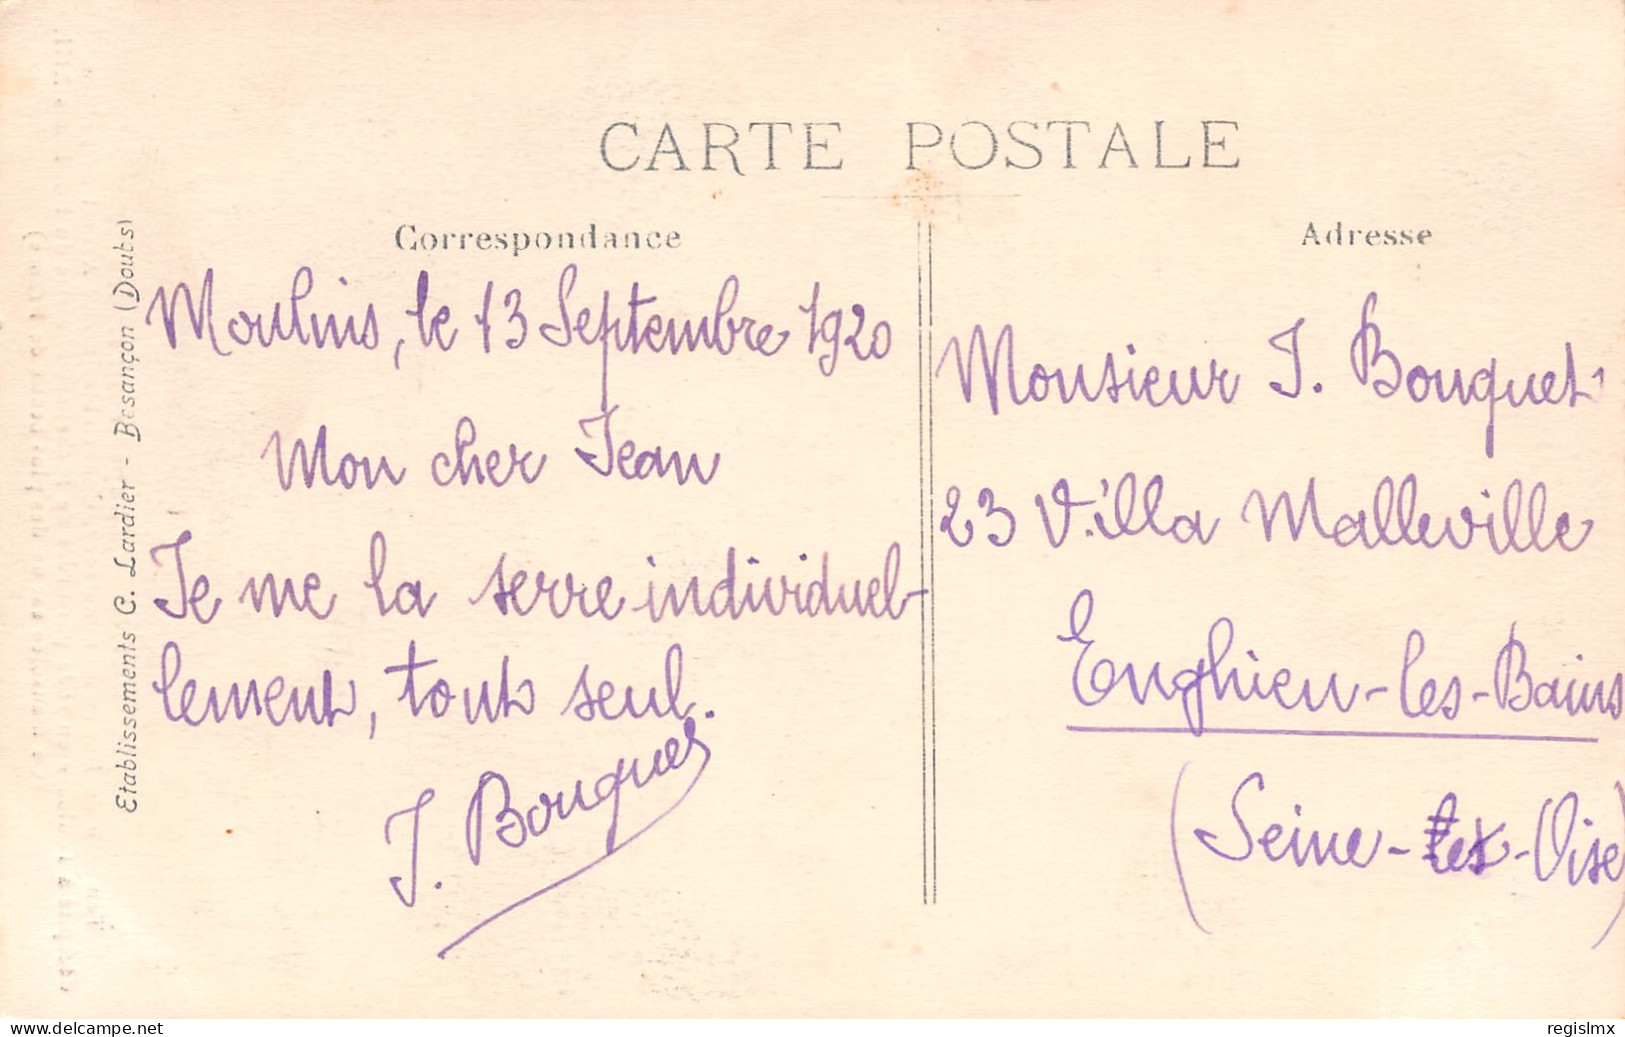 CARTE POSTALE
Correspondance
Moulins, le 13 Septembre 1920
Mon cher Jean
Je me la serre individuel-
lement, tout seul.
J. Bouquet
Adresse
Monsieur J. Bouquet
23 Villa Malleville
Enghien-les-Bains
(Seine-et-Oise)
Etablissements C. Lardier - Besançon (Doubs)
www.delcampe.net
regislmx